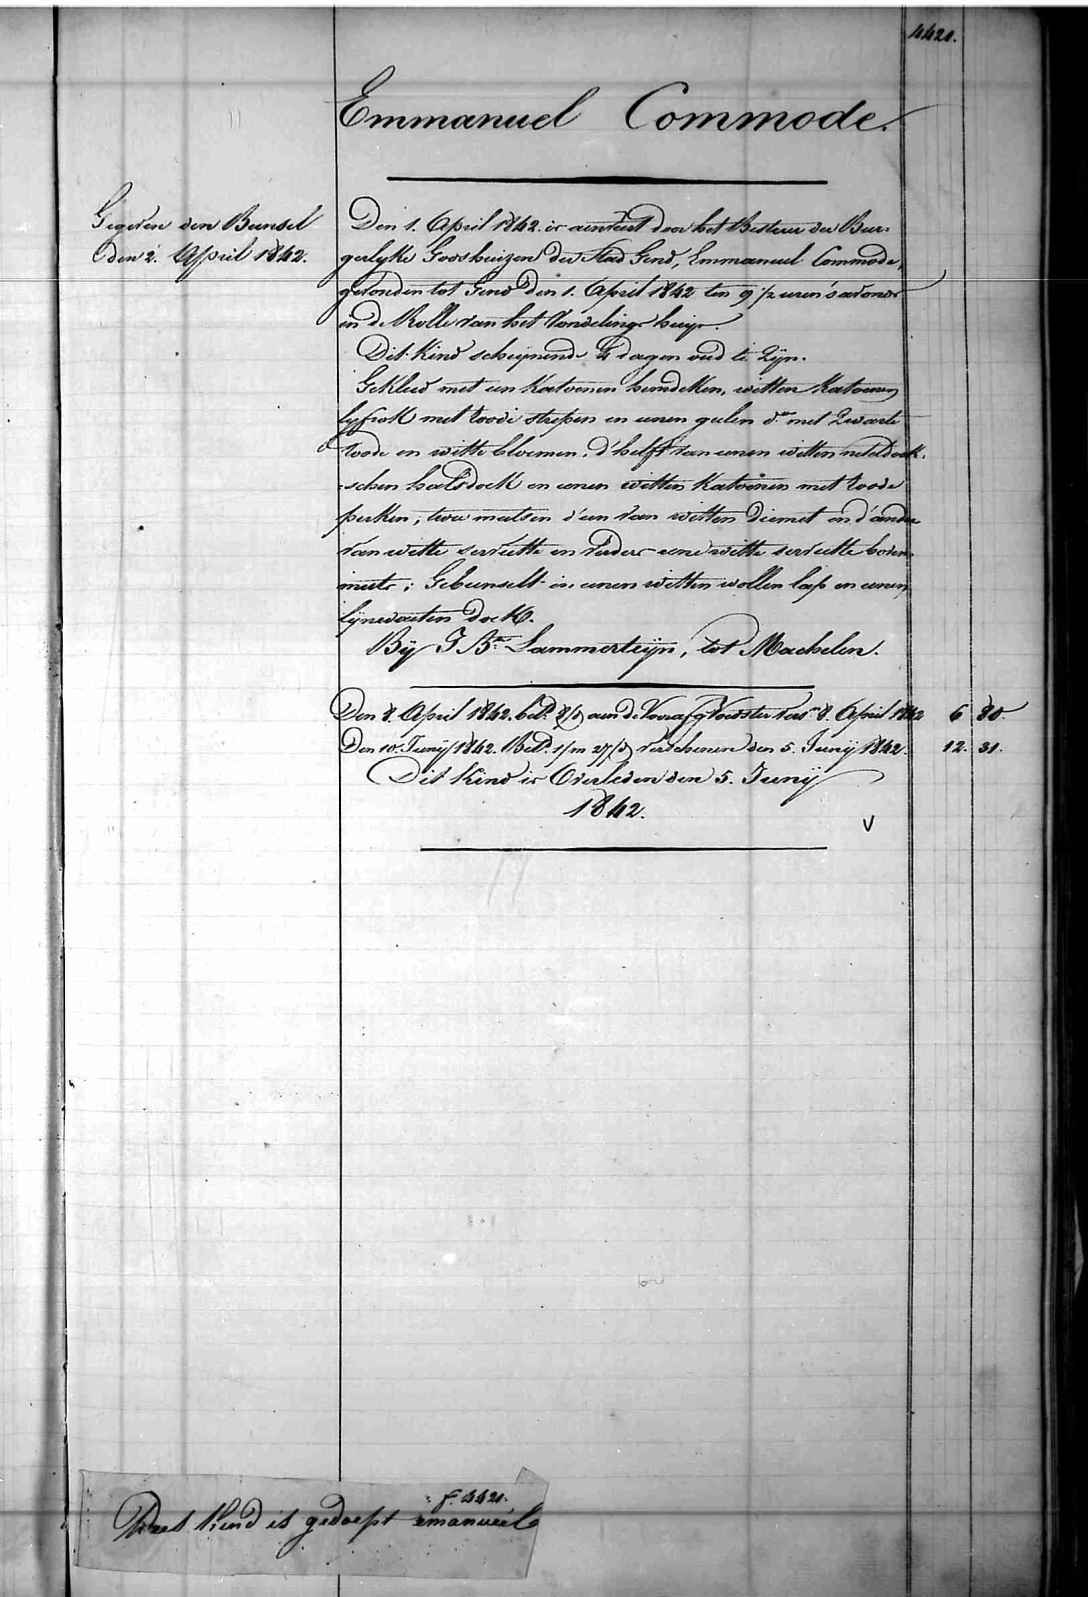 4421.
Emmanuel Commode.
Gegeven den Bunsel
den 2. April 1842.
Den 1. April 1842. is aenveert door het Bestuer der Bur=
gerlyke Godshuizen der Stad Gend, Emmanuel Commode,
gevonden tot Gend den 1. April 1842 ten 9 1/2 uren 's avonds
in de Rolle van het Vondelings huys.
Dit Kind schynende 4 dagen oud te Zyn.
Gekleed met een Katoenen hemdeken, witten Katoenen
lyfrok met roode strepen en eenen geelen do met Zwarte
roode en witte bloemen, d'helft van eenen witten neteldoek=
=schen halsdoek en eenen witten Katoenen met roode
perken, twee mutsen d'een van witten Diemet en d'ander
van witte serviette en verder eene witte serviette boven=
muts; Gebunselt in eenen witten wollen lap en eenen
lynwaeten doek.
By J. Bte Lammertyn, tot Machelen.
Den 8. April 1842. beta. aen de Voorafg Voedster vers 8. April 1842 6 80.
Den 10. Juny 1842. Beta. 1/m 27/d verschenen den 5. Juny 1842. 12. 31.
Dit Kind is Overleden den 5. Juny
1842.
V
f. 4421.
Dees Kind is gedoept emanueel